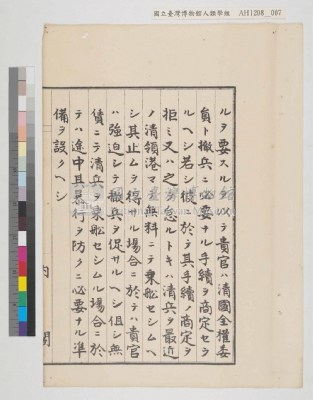 國立臺灣博物館人類學組 AH1208_007
ルヲ要スルヲ以テ貴官ハ清國全權委
員ト撤兵ニ必要ナル手續ヲ商定セラ
ルヘシ若シ彼ニ於テ其手續ノ商定ヲ
拒ミ又ハ之ヲ怠ルトキハ清兵ヲ最近
ノ清領港マテ無料ニテ乗船セシムヘ
シ其止ムヲ得サル場合ニ於テハ貴官
ハ強迫シテ撤兵ヲ促サルヘシ但シ無
償ニテ清兵ヲ乗船セシムル場合ニ於
テハ途中其暴行ヲ防クニ必要ナル準
備ヲ設クヘシ
內閣